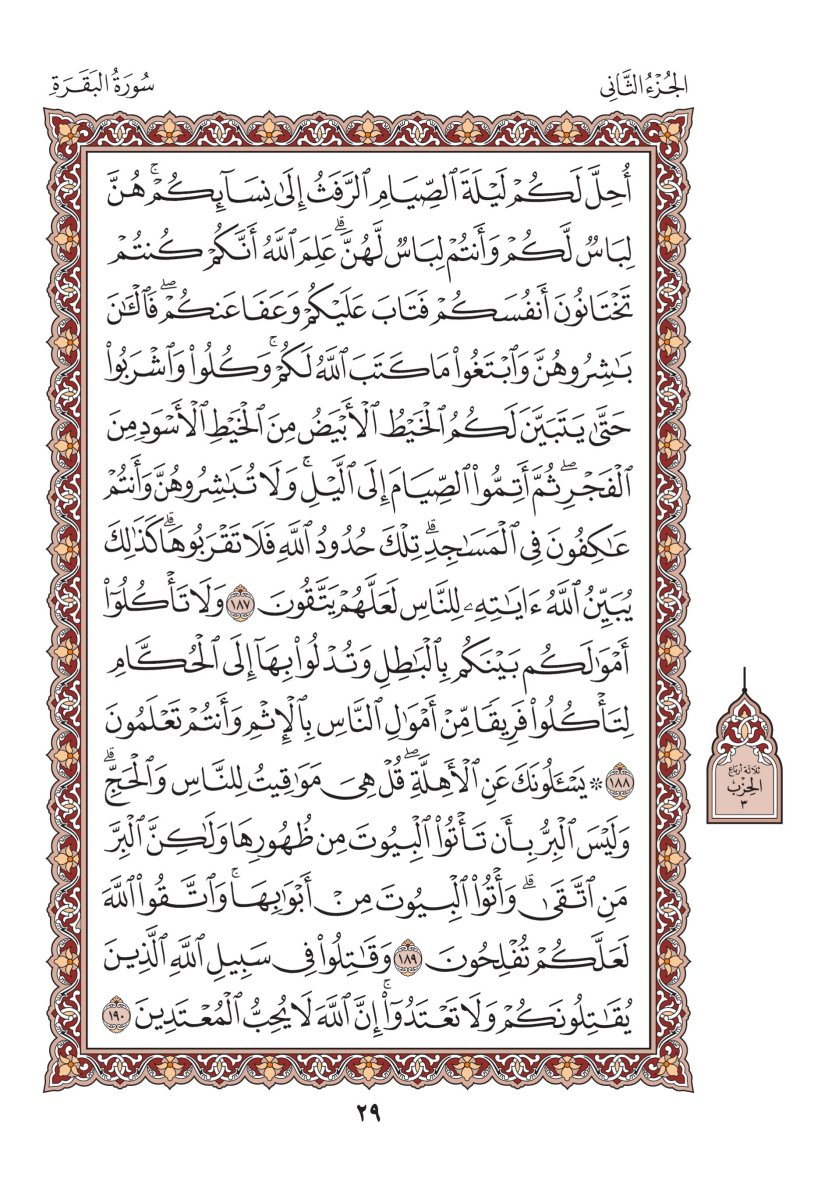 الجُزْءُ الثَّانِي
سُورَةُ البَقَرَةِ
أُحِلَّ لَكُمۡ لَيۡلَةَ ٱلصِّيَامِ ٱلرَّفَثُ إِلَىٰ نِسَآئِكُمۡۚ هُنَّ
لِبَاسٞ لَّكُمۡ وَأَنتُمۡ لِبَاسٞ لَّهُنَّۗ عَلِمَ ٱللَّهُ أَنَّكُمۡ كُنتُمۡ
تَخۡتَانُونَ أَنفُسَكُمۡ فَتَابَ عَلَيۡكُمۡ وَعَفَا عَنكُمۡۖ فَٱلۡـَٰٔنَ
بَٰشِرُوهُنَّ وَٱبۡتَغُواْ مَا كَتَبَ ٱللَّهُ لَكُمۡۚ وَكُلُواْ وَٱشۡرَبُواْ
حَتَّىٰ يَتَبَيَّنَ لَكُمُ ٱلۡخَيۡطُ ٱلۡأَبۡيَضُ مِنَ ٱلۡخَيۡطِ ٱلۡأَسۡوَدِ مِنَ
ٱلۡفَجۡرِۖ ثُمَّ أَتِمُّواْ ٱلصِّيَامَ إِلَى ٱلَّيۡلِۚ وَلَا تُبَٰشِرُوهُنَّ وَأَنتُمۡ
عَٰكِفُونَ فِي ٱلۡمَسَٰجِدِۗ تِلۡكَ حُدُودُ ٱللَّهِ فَلَا تَقۡرَبُوهَاۗ كَذَٰلِكَ
يُبَيِّنُ ٱللَّهُ ءَايَٰتِهِۦ لِلنَّاسِ لَعَلَّهُمۡ يَتَّقُونَ ١٨٧ وَلَا تَأۡكُلُوٓاْ
أَمۡوَٰلَكُم بَيۡنَكُم بِٱلۡبَٰطِلِ وَتُدۡلُواْ بِهَآ إِلَى ٱلۡحُكَّامِ
لِتَأۡكُلُواْ فَرِيقٗا مِّنۡ أَمۡوَٰلِ ٱلنَّاسِ بِٱلۡإِثۡمِ وَأَنتُمۡ تَعۡلَمُونَ
١٨٨ * يَسۡـَٔلُونَكَ عَنِ ٱلۡأَهِلَّةِۖ قُلۡ هِيَ مَوَٰقِيتُ لِلنَّاسِ وَٱلۡحَجِّۗ
وَلَيۡسَ ٱلۡبِرُّ بِأَن تَأۡتُواْ ٱلۡبُيُوتَ مِن ظُهُورِهَا وَلَٰكِنَّ ٱلۡبِرَّ
مَنِ ٱتَّقَىٰۗ وَأۡتُواْ ٱلۡبُيُوتَ مِنۡ أَبۡوَٰبِهَاۚ وَٱتَّقُواْ ٱللَّهَ
لَعَلَّكُمۡ تُفۡلِحُونَ ١٨٩ وَقَٰتِلُواْ فِي سَبِيلِ ٱللَّهِ ٱلَّذِينَ
يُقَٰتِلُونَكُمۡ وَلَا تَعۡتَدُوٓاْۚ إِنَّ ٱللَّهَ لَا يُحِبُّ ٱلۡمُعۡتَدِينَ ١٩٠
ثلاثة أرباع
الحِزْب
٣
٢٩